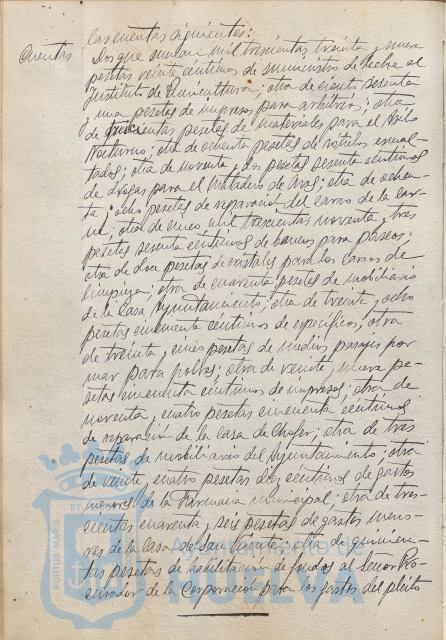 las cuentas siguientes:
Cuentas Dos que suman mil trescientas treinta y nueve
pesetas veinte céntimos de suministro de leche al
Instituto de Puericultura; otra de ciento sesenta
y una pesetas de impresos para arbitrios; otra
de trescientas pesetas de materiales para el Asilo
Nocturno; otra de ochenta pesetas de rótulos esmal-
tados; otra de noventa y dos pesetas sesenta céntimos
de drogas para el Matadero de Aves; otra de ochen-
ta y ocho pesetas de reparación del carro de la car-
ne; otra de cinco mil trescientas noventa y tres
pesetas sesenta céntimos de bancos para paseos;
otra de doce pesetas de cristales para los carros de
limpieza; otra de cuarenta pesetas de mobiliario
de la Casa Ayuntamiento; otra de treinta y ocho
pesetas cincuenta céntimos de específicos; otra
de treinta y seis pesetas de medios pasajes por
mar para pobres; otra de veinte y nueve pe-
setas cincuenta céntimos de impresos; otra de
noventa y cuatro pesetas cincuenta céntimos
de reparación de la casa de Chofer; otra de tres
pesetas de mobiliario del Ayuntamiento; otra
de veinte y cuatro pesetas diez céntimos de gastos
menores de la Farmacia municipal; otra de tres-
cientas cuarenta y seis pesetas de gastos meno-
res de la Casa de San Vicente; otra de quinien-
tas pesetas de habilitación de fondos al Señor Pro-
curador de la Corporación para los gastos del pleito
PORTUS MARIS ET
Ayuntamiento de
HUELVA